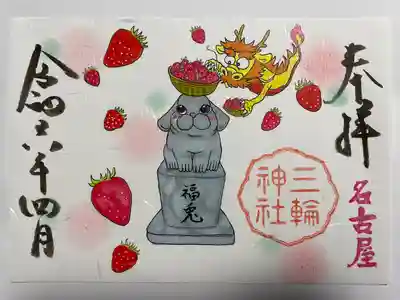 奉拝
名古屋
三輪
神社
福兎
令和六年四月